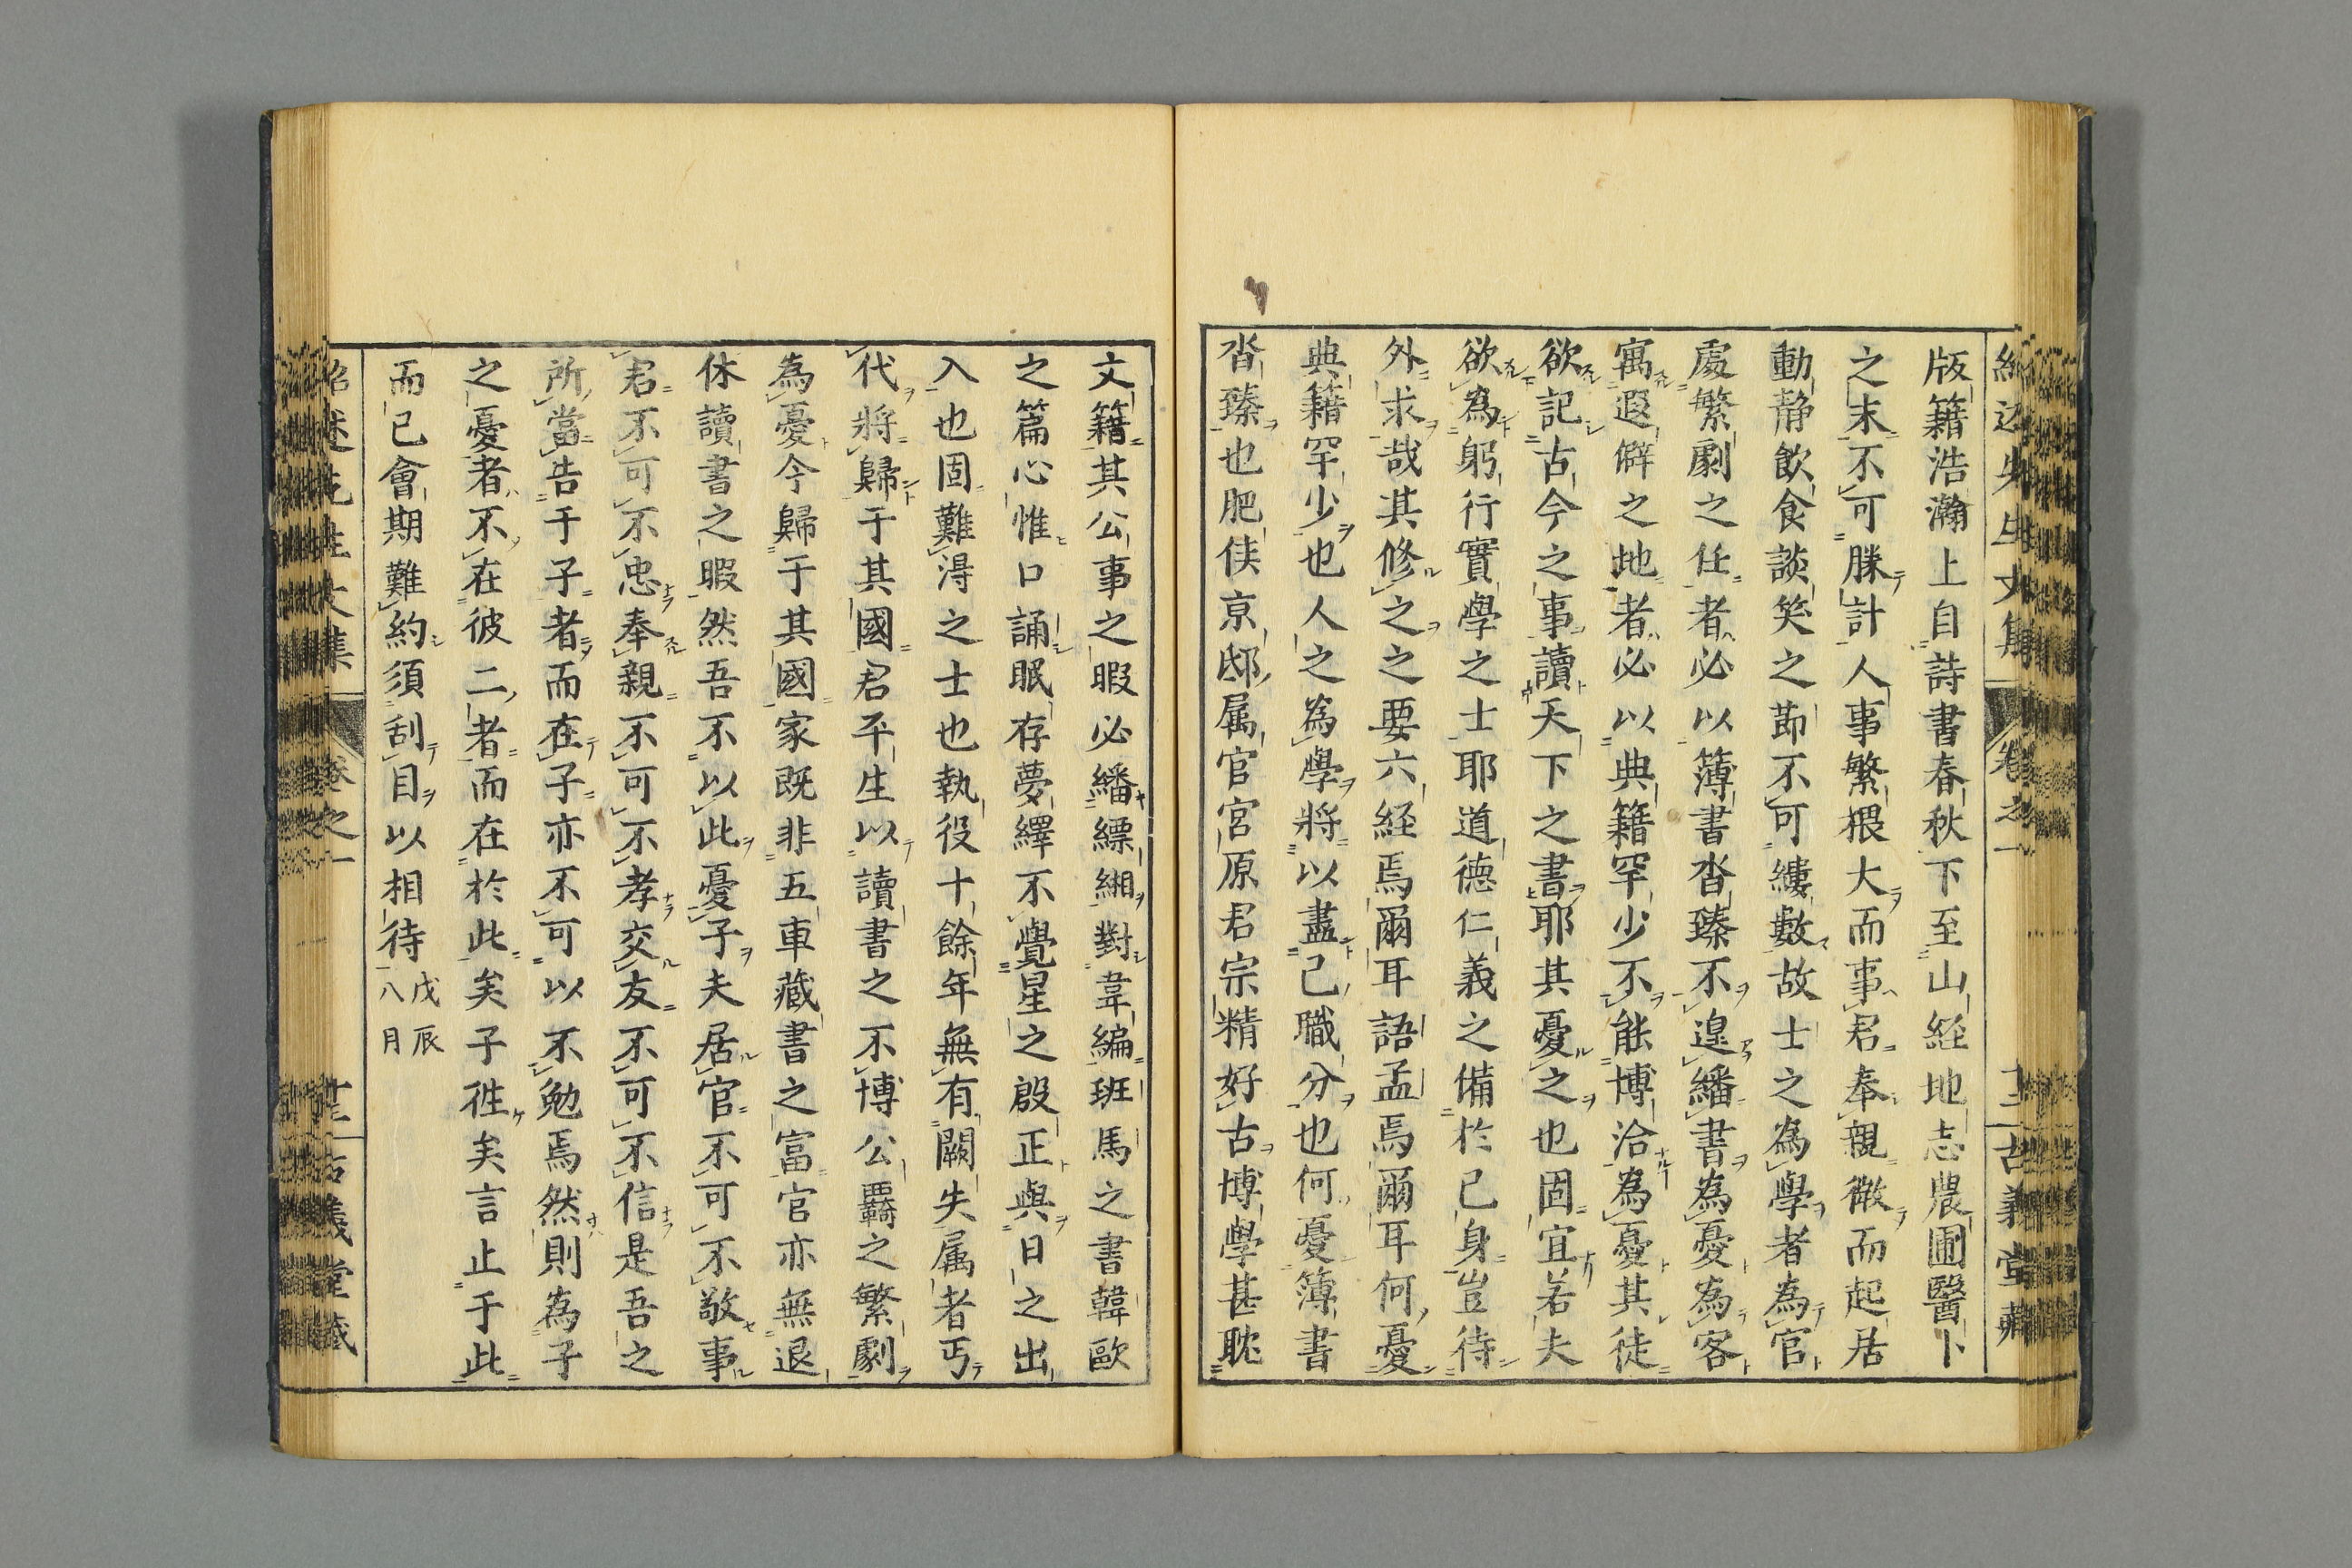 版籍浩瀚上自詩書春秋下至山経地志農圃醫卜
之末不可勝計人事繁猥大而事君奉親微而起居
動静飲食談笑之節不可縷數故士之為學者為官
處繁劇之任者必以簿書沓臻不遑繙書為憂為客
寓遐僻之地者必以典籍罕少不能博洽為憂其徒
欲記古今之事讀天下之書耶其憂之也固宜若夫
欲為躬行實學之士耶道德仁義之備於己身豈待
外求哉其修之之要六経焉爾耳語孟焉爾耳何憂
典籍罕少也人之為學將以盡己職分也何憂簿書
沓臻也肥侯京邸属官宮原君宗精好古博學甚耽
文籍其公事之暇必繙縹緗對韋編班馬之書韓歐
之篇心惟口誦眠存夢繹不覺星之殷正與日之出
入也固難淂之士也執役十餘年無有闕失属者丐
代將歸于其國君平生以讀書之不博公覊之繁劇
為憂今歸于其國家既非五車藏書之富官亦無退
休讀書之暇然吾不以此憂子夫居官不可不敬事
君不可不忠奉親不可不孝交友不可不信是吾之
所當告于子者而在子亦不可以不勉焉然則為子
之憂者不在彼二者而在於此矣子徃矣言止于此
而已會期難約須刮目以相待 戊辰八月
紹述先生文集 卷之一 十二 古義堂藏